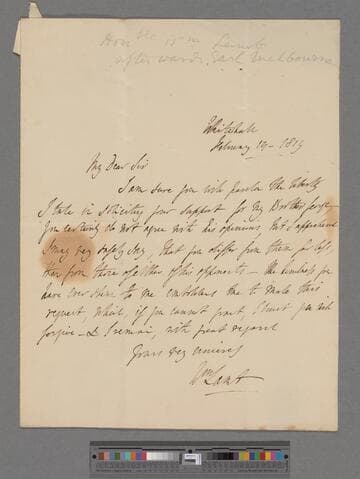 Honble Wm Lamb
afterwards Earl Melbourne
Whitehall
February 19 - 1819
My Dear Sir
I am sure you will pardon the liberty
I take in soliciting your support for my Brother George -
You certainly do not agree with his opinions, but I apprehend
I may very safely say, that you differ from them far less
than from those of either of his opponents - The kindness you
have ever shewn to me emboldens me to make this
request, which, if you cannot grant, I trust you will
forgive - & I remain, with great regard
Yours very sincerely
Wm Lamb